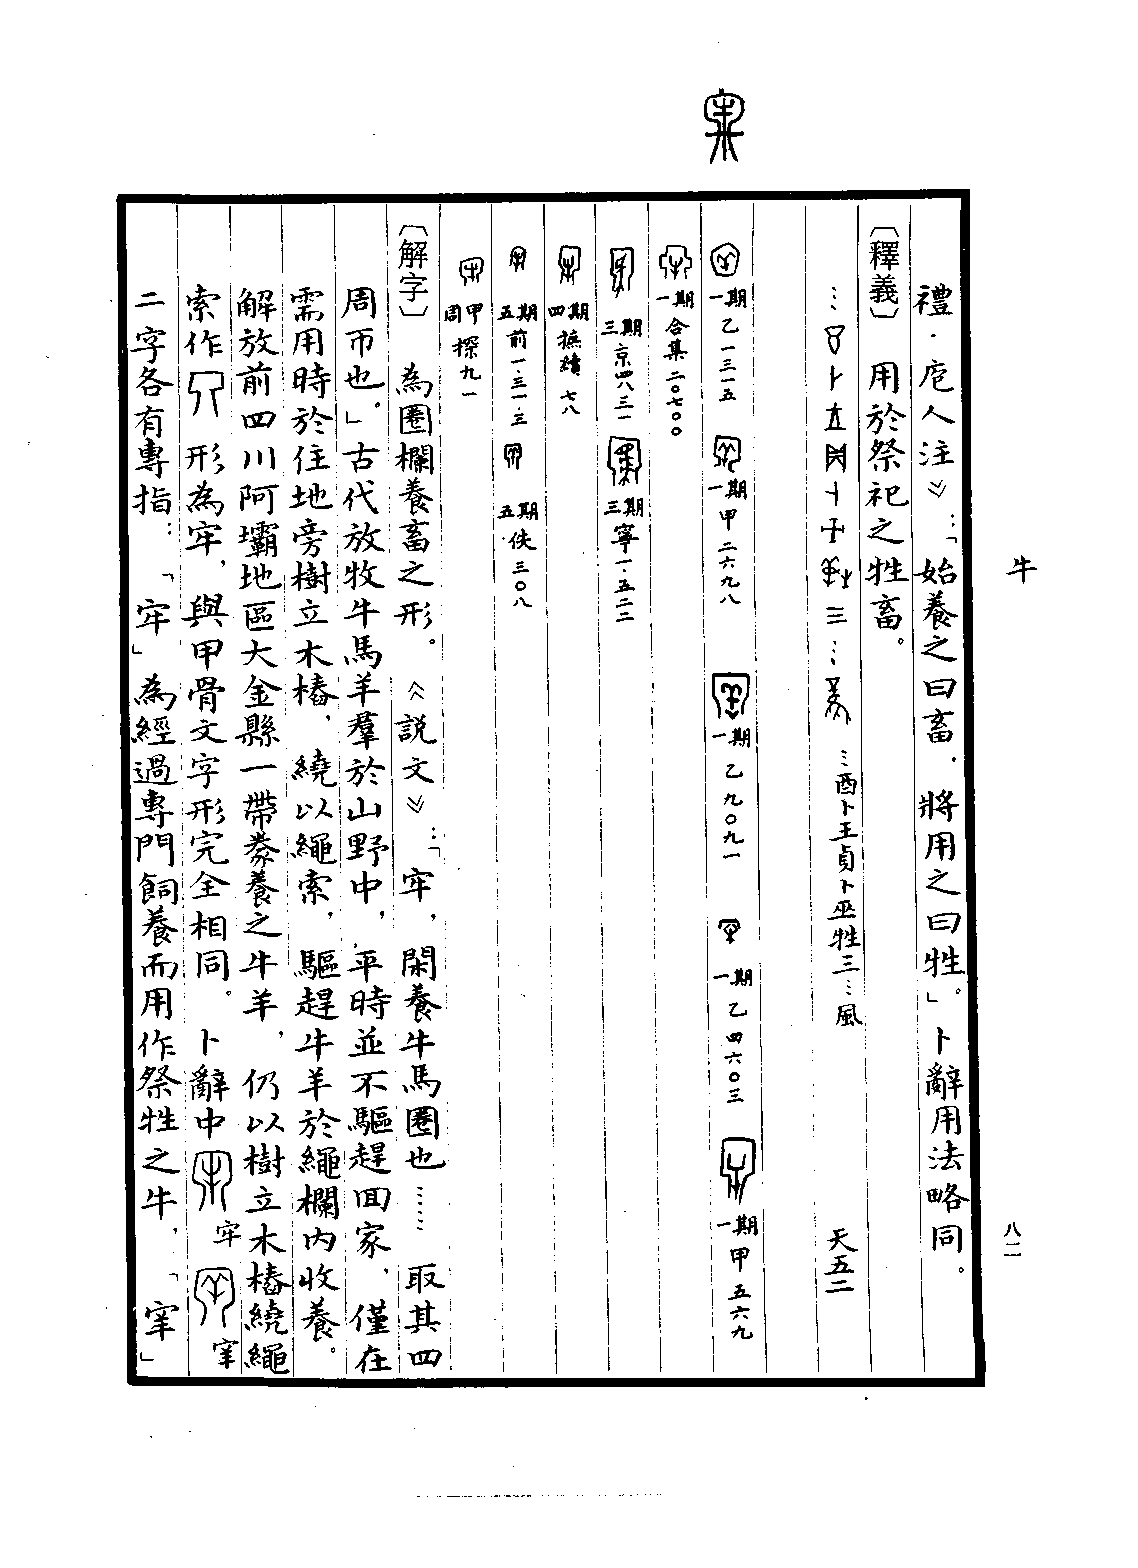 牛
八二
禮·庖人注》:「始養之曰畜,將用之曰牲。」卜辭用法略同。
〔釋義〕 用於祭祀之牲畜。
…酉卜王貞卜巫牲三…風 天五二
一期 乙一三一五 一期 甲二六九八 一期 乙九〇九一 一期 乙四六〇三 一期 甲五六九
一期 合集二〇七〇〇
三期 京四八三一 三期 寧一·五二二
四期 摭續 七八
五期 前一·三一·三 五期 佚三〇八
周甲 探九一
〔解字〕 為圈欄養畜之形。《說文》:「牢,閑養牛馬圈也……取其四
周帀也。」古代放牧牛馬羊羣於山野中,平時並不驅趕回家,僅在
需用時於住地旁樹立木樁,繞以繩索,驅趕牛羊於繩欄內收養。
解放前四川阿壩地區大金縣一帶豢養之牛羊,仍以樹立木樁繞繩
索作 形為牢,與甲骨文字形完全相同。卜辭中 牢 𫳅
二字各有專指:「牢」為經過專門飼養而用作祭牲之牛,「𫳅」